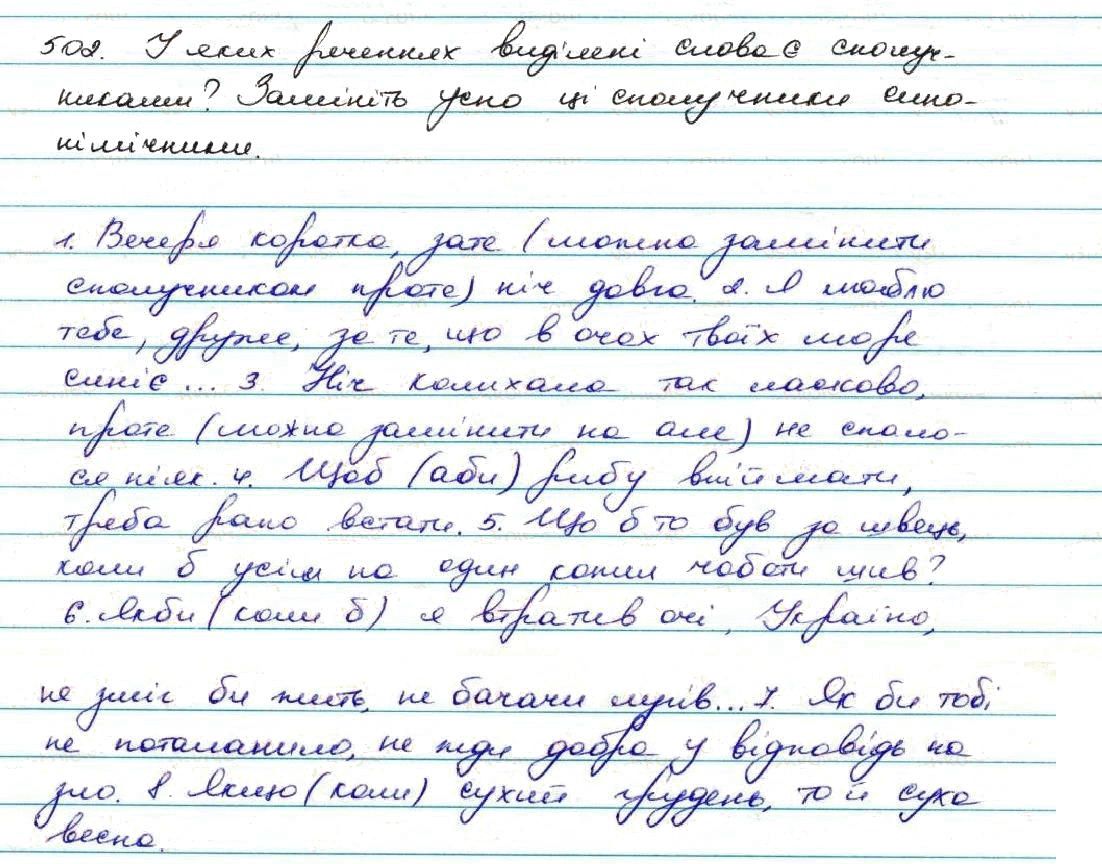 502. У яких реченнях виділені слова є сполуч-
никами? Замініть усно ці сполучники сино-
німічними.
1. Вечеря коротка, зате (можна замінити
сполучником проте) ніч довга. 2. Я люблю
тебе, друже, за те, що в очах твоїх море
синіє... 3. Ніч колихала так ласково,
проте (можна замінити на але) не спало-
ся ніяк. 4. Щоб (аби) рибу впіймати,
треба рано встати. 5. Що б то був за швець,
коли б усім на один копил чоботи шив?
6. Якби (коли б) я втратив очі, Україно,
не зміг би жить, не бачачи лугів... 7. Як би тобі
не поталанило, не жди добра у відповідь на
зло. 8. Якщо (коли) сухий грудень, то й суха
весна.